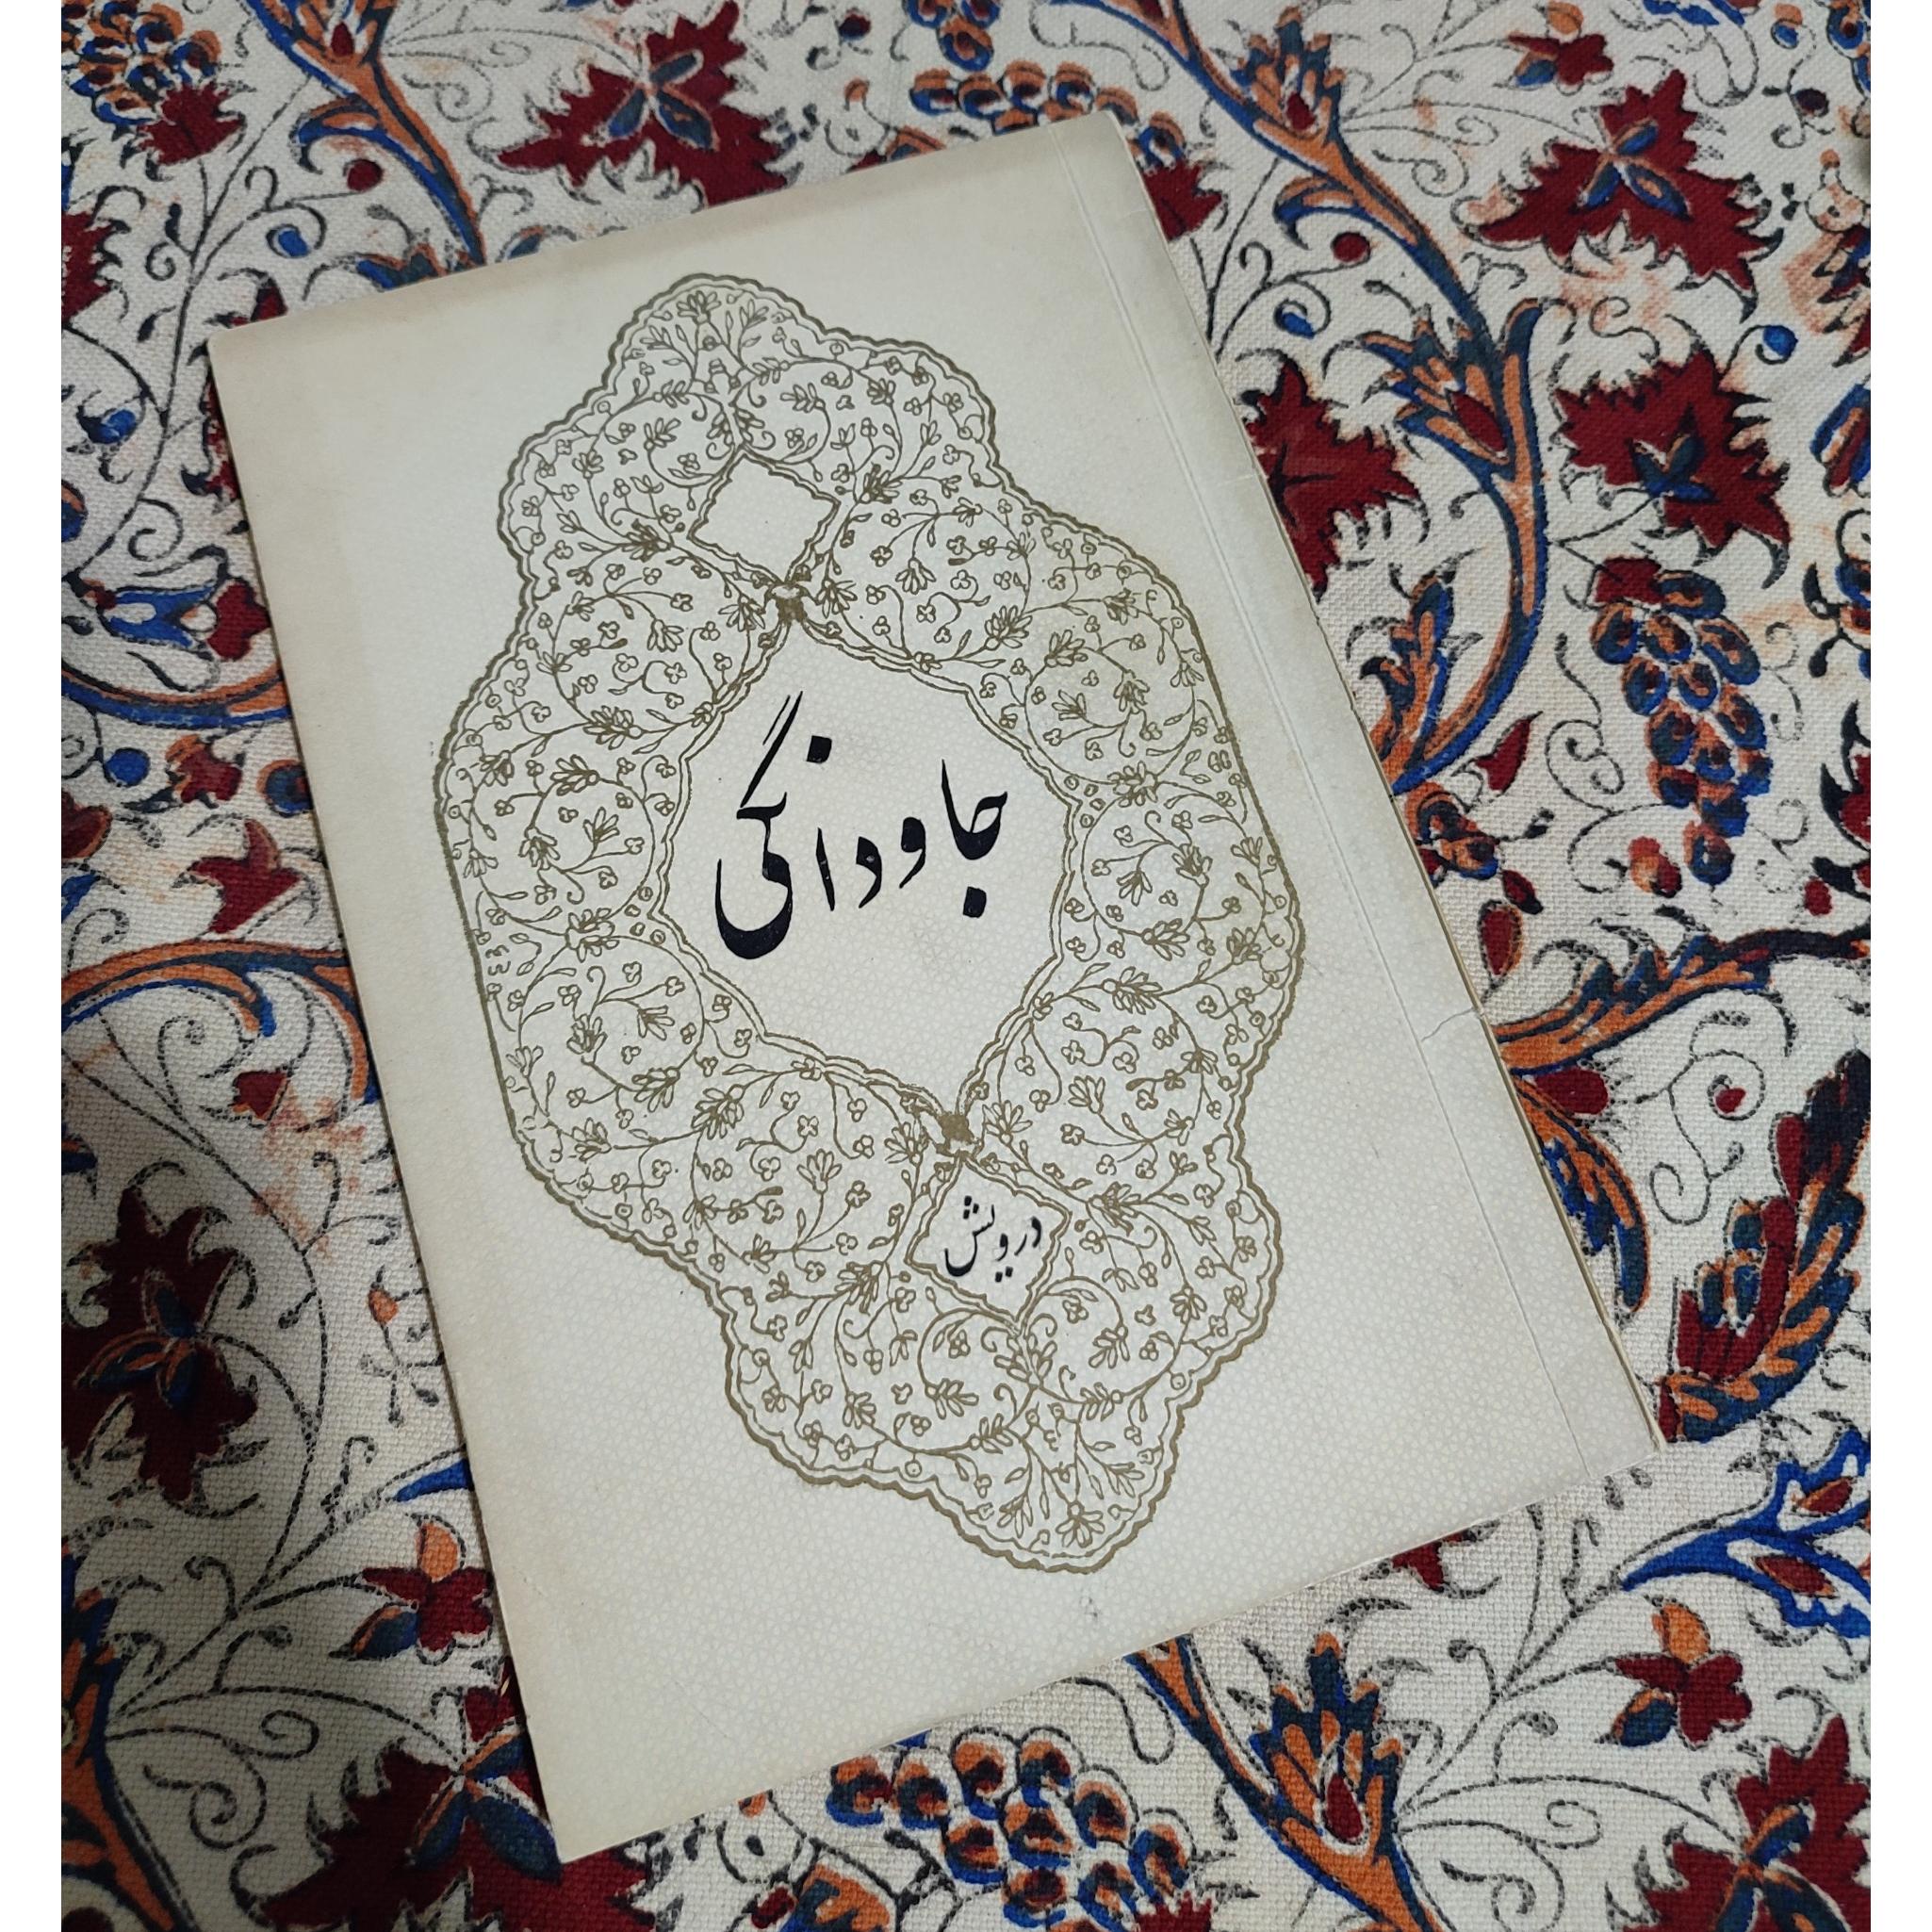 جاودانگی
درویش